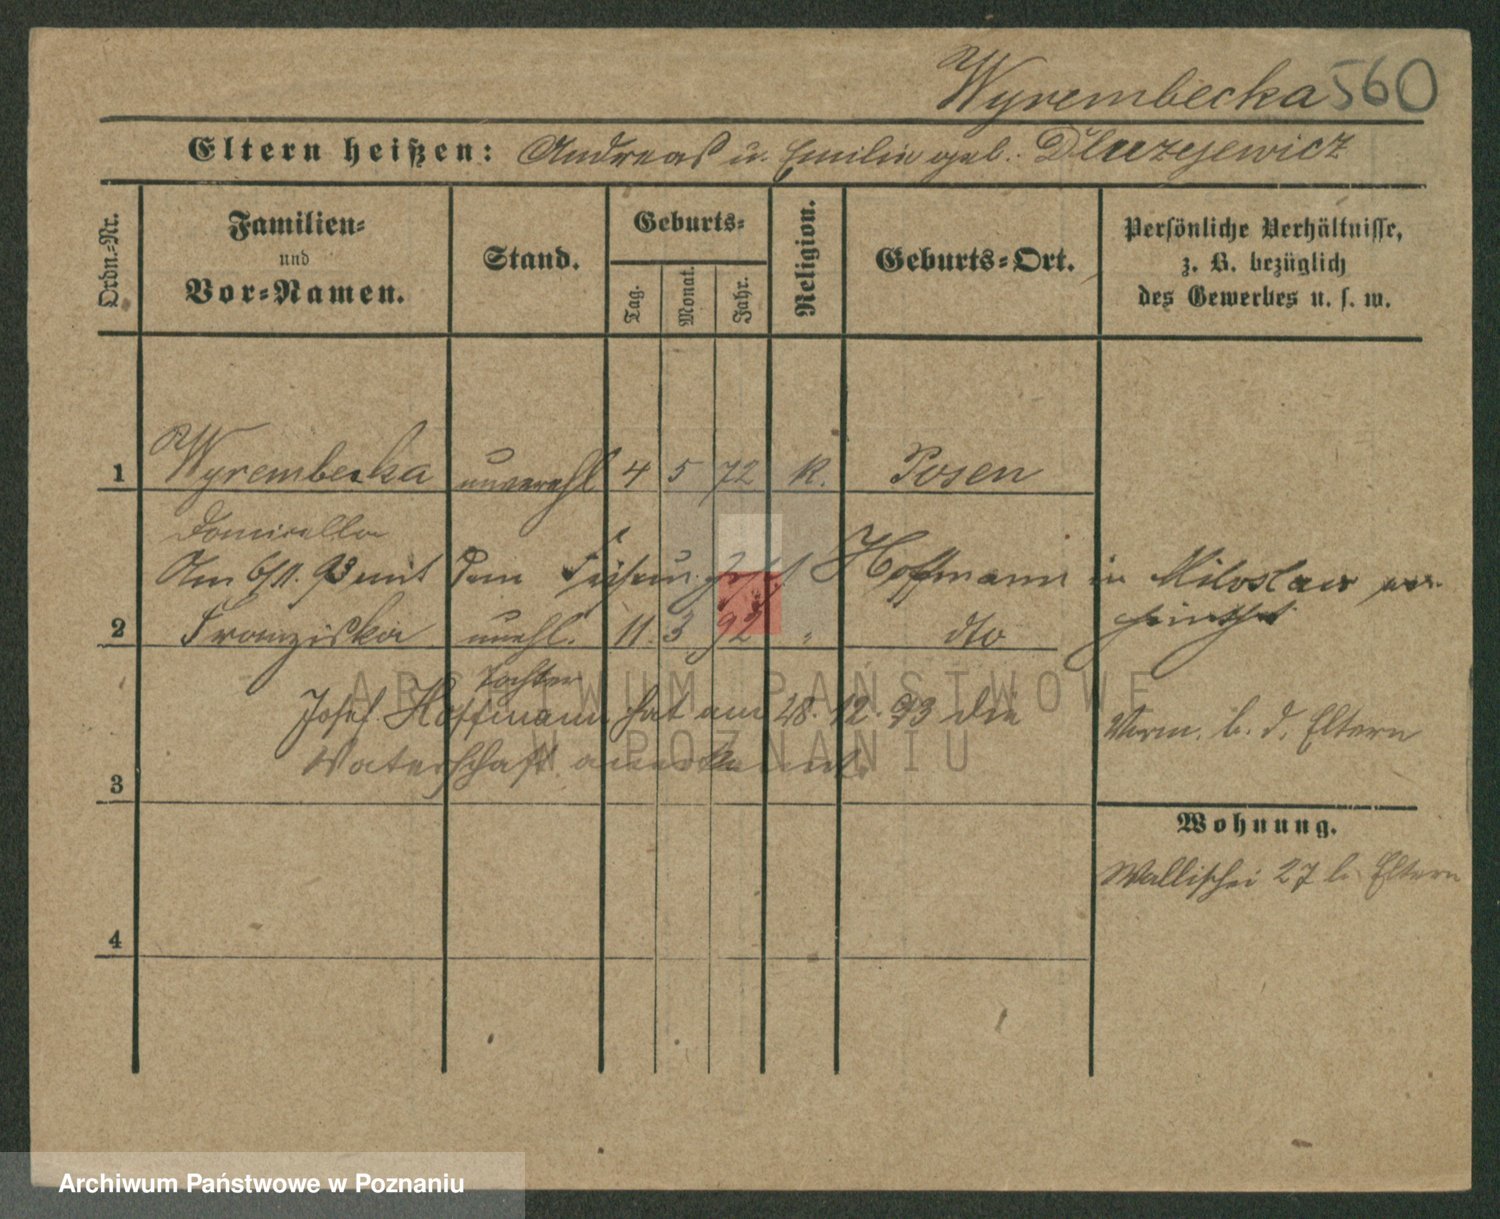 Wyrembecka 560
Eltern heißen: Andreas u. Emilie geb. Dluzejewicz
Ordn.-Nr.
Familien-
und
Vor-Namen.
Stand.
Geburts-
Tag.
Monat.
Jahr.
Religion.
Geburts-Ort.
Persönliche Verhältnisse,
z. B. bezüglich
des Gewerbes u. s. w.
1 Wyrembecka unverehl 4 5 72 K. Posen
Domicella
Am 6/11. 93 mit dem Josef Hoffmann in Miloslaw ver-
heirathet
2 Franziska unehl. 11. 3 92 " dto
Tochter
Josef Hoffmann hat am 28. 12. 93 die
Vaterschaft anerkannt.
Verm. b. d. Eltern
3
Wohnung.
Wallischei 27 b. Eltern
4
ARCHIWUM PAŃSTWOWE
W POZNANIU
Archiwum Państwowe w Poznaniu